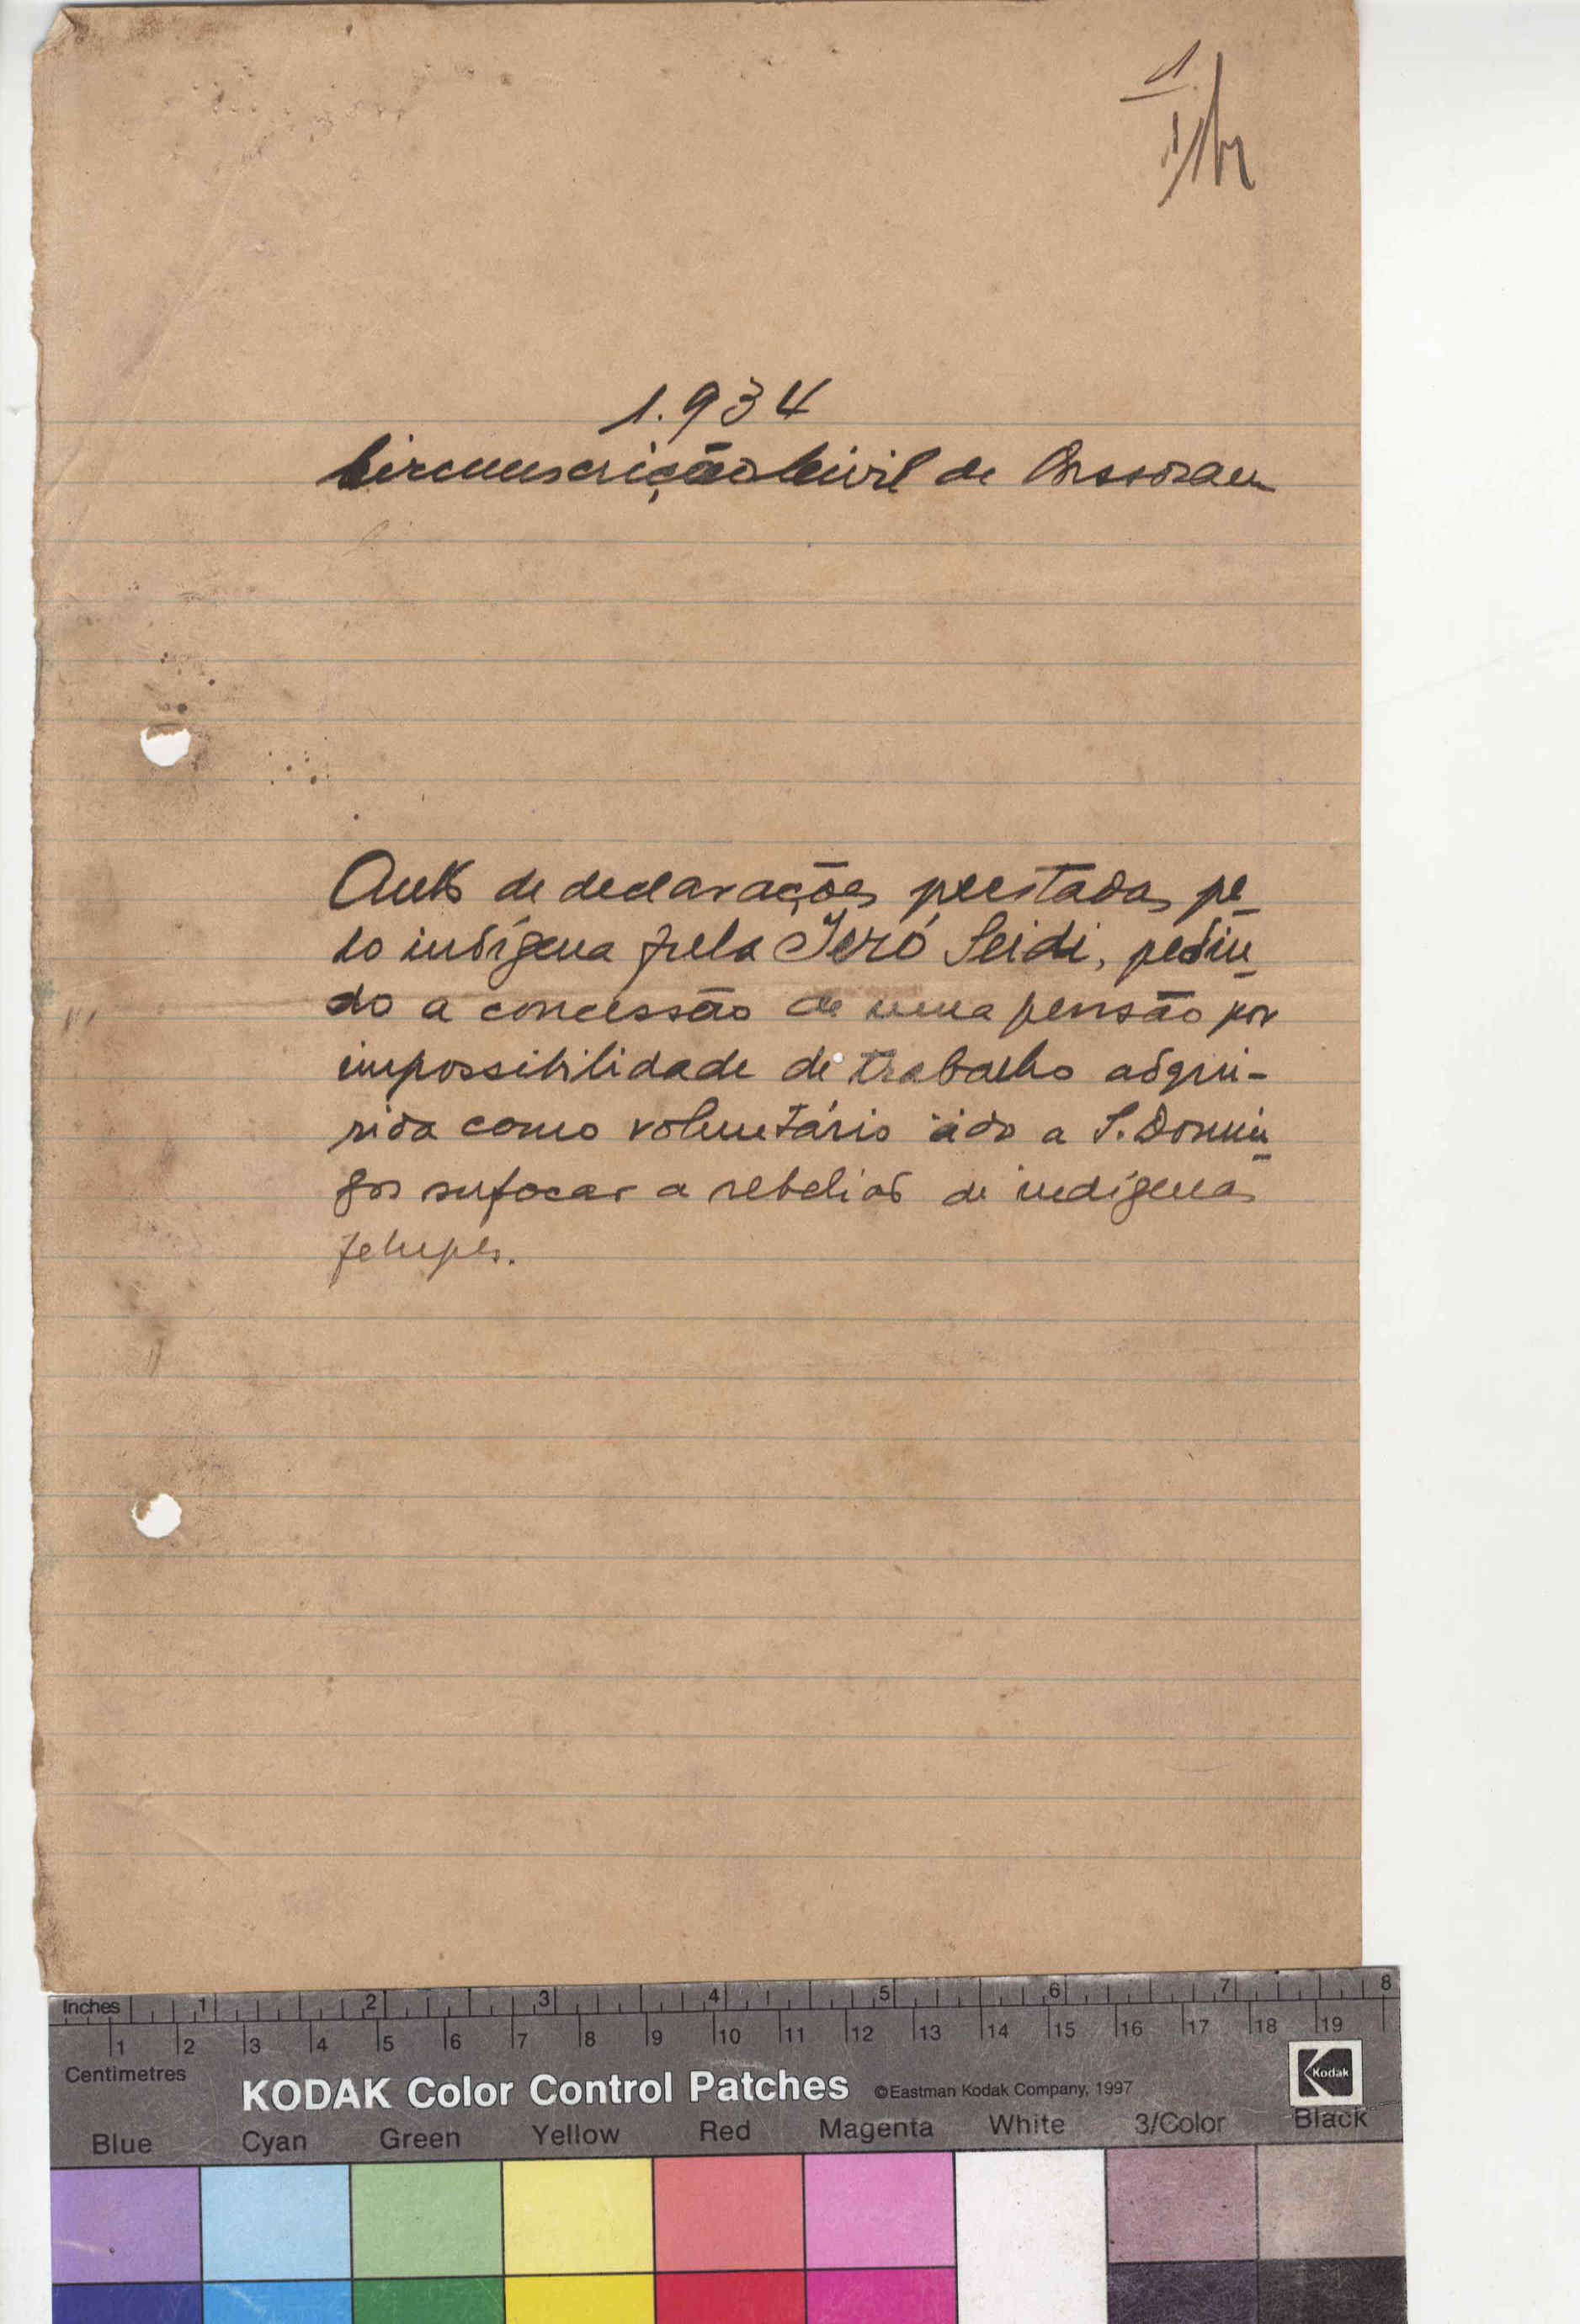 1
1.934
Circunscrição Civil de Bissorau
Auto de declarações prestadas pe-
lo indígena fula Ieró Seidi, pedin-
do a concessão de uma pensão por
impossibilidade de trabalho adqui-
rida como voluntário ido a S. Domin-
gos sufocar a rebelião de indígenas
felupes.
Inches 1 2 3 4 5 6 7 8
1 2 3 4 5 6 7 8 9 10 11 12 13 14 15 16 17 18 19
Centimetres
KODAK Color Control Patches ©Eastman Kodak Company, 1997 Kodak
Blue Cyan Green Yellow Red Magenta White 3/Color Black